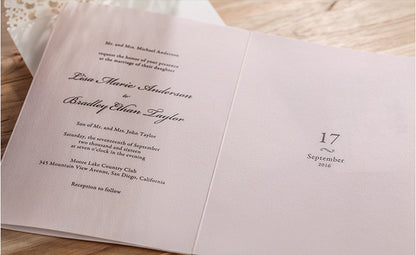 Mr. and Mrs. Michael Anderson
request the honor of your presence
at the marriage of their daughter
Lisa Marie Anderson
&
Bradley Ethan Taylor
Son of Mr. and Mrs. John Taylor
Saturday, the seventeenth of September
two thousand and sixteen
at seven o'clock in the evening
Moore Lake Country Club
345 Mountain View Avenue, San Diego, California
Reception to follow
17
September
2016